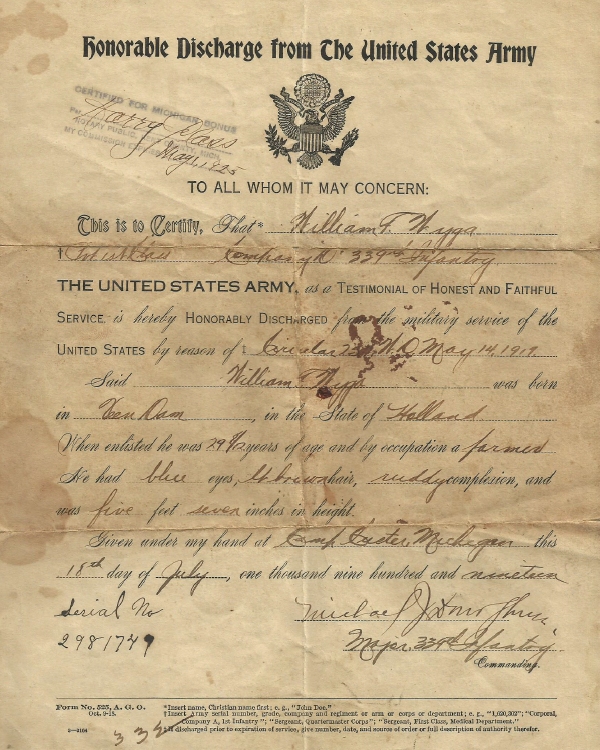 Honorable Discharge from The United States Army
CERTIFIED FOR MICHIGAN BONUS
Harry
NOTARY PUBLIC, COUNTY, MICH.
MY COMMISSION
May 1, 1925
TO ALL WHOM IT MAY CONCERN:
This is to Certify, That* William T. Wyga
† Pvt 1st Class Company "D" 339th Infantry
THE UNITED STATES ARMY, as a TESTIMONIAL OF HONEST AND FAITHFUL
SERVICE, is hereby HONORABLY DISCHARGED from the military service of the
UNITED STATES by reason of ‡ Circular W.D. May 14, 1919.
Said William T Wyga was born
in Veen Dam, in the State of Holland
When enlisted he was 29 years of age and by occupation a farmer
He had blue eyes, lt brown hair, ruddy complexion, and
was five feet seven inches in height.
Given under my hand at Camp Custer, Michigan this
18th day of July, one thousand nine hundred and nineteen
Serial No
2981749
Michael J.
Major, 339th Infantry
Commanding.
Form No. 525, A. G. O.
Oct. 9-18.
*Insert name, Christian name first; e. g., "John Doe."
†Insert Army serial number, grade, company and regiment or arm or corps or department; e. g., "1,620,302"; "Corporal,
Company A, 1st Infantry"; "Sergeant, Quartermaster Corps"; "Sergeant, First Class, Medical Department."
‡If discharged prior to expiration of service, give number, date, and source of order or full description of authority therefor.
3—3164